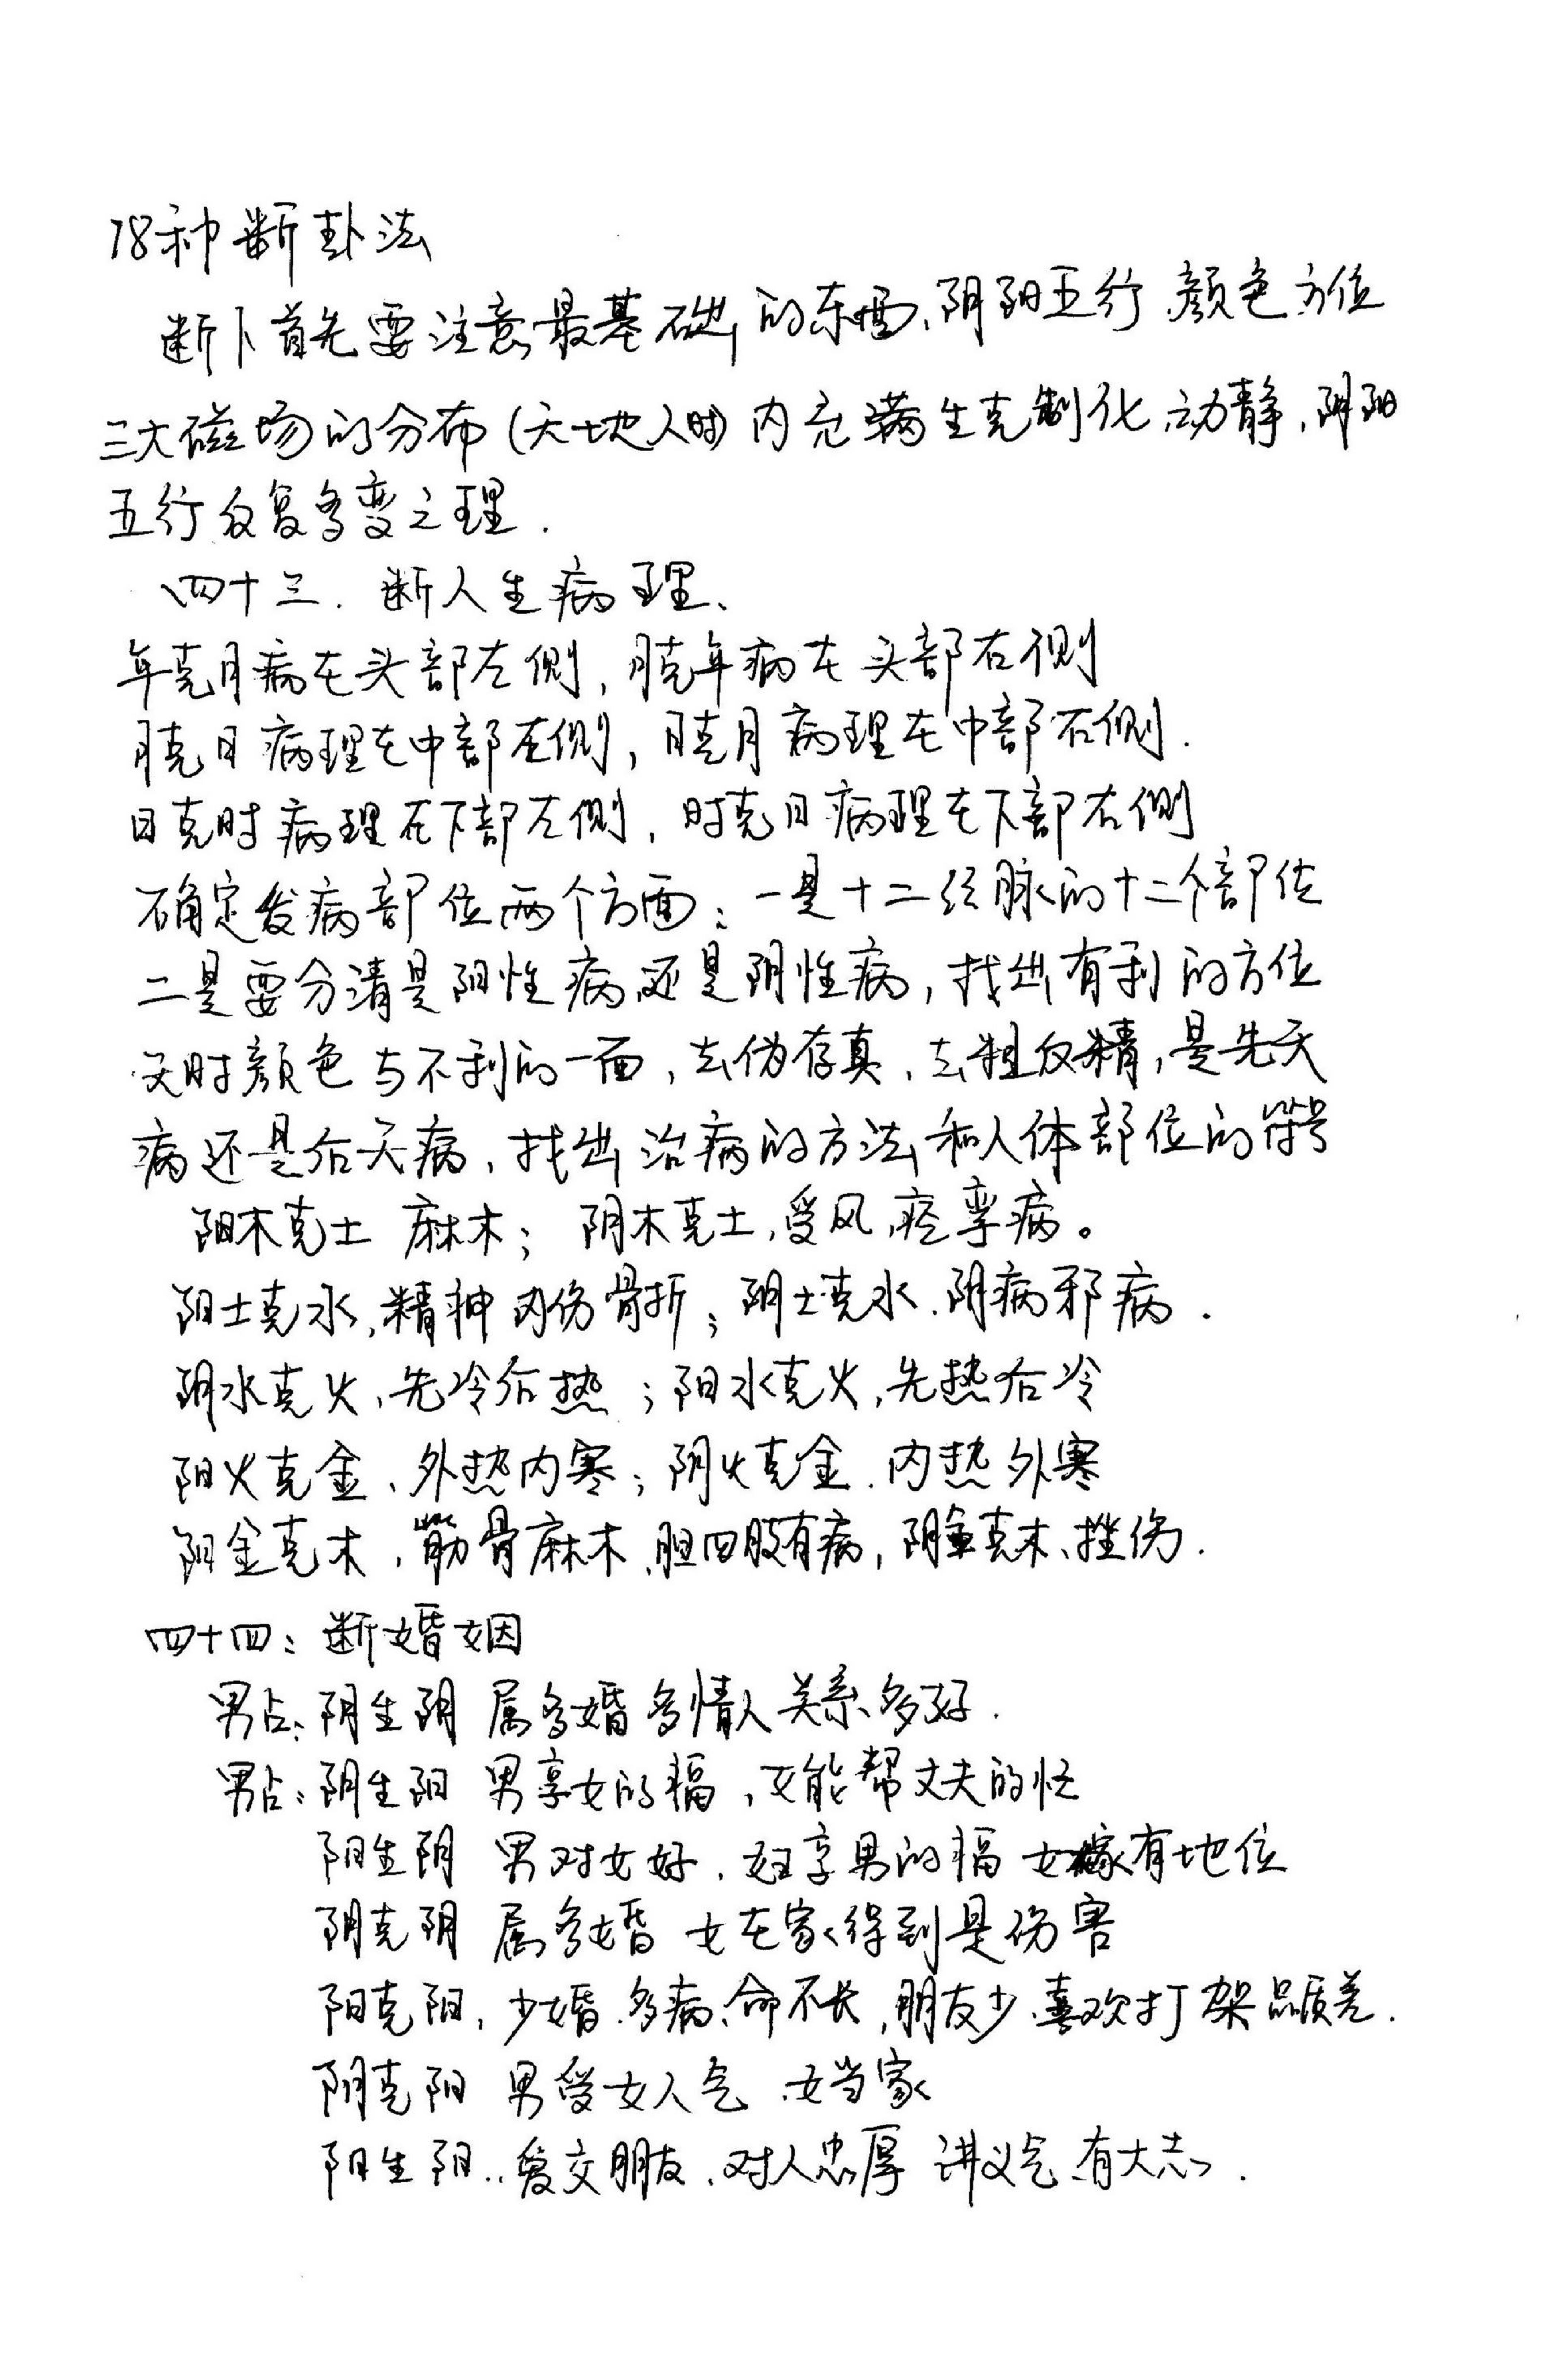 78种断卦法
断卜首先要注意最基础的东西、阴阳五行、颜色、方位
三大磁场的分布(天地人时)内充满生克制化、动静,阴阳
五行反复多变之理.
四十三. 断人生病理、
年克月病在头部左侧,月克年病在头部右侧
月克日病理在中部左侧,日克月病理在中部右侧.
日克时病理在下部左侧,时克日病理在下部右侧
确定发病部位两个方面:一是十二经脉的十二个部位
二是要分清是阳性病还是阴性病,找出有利的方位
天时颜色与不利的一面,去伪存真,去粗取精,是先天
病还是后天病,找出治病的方法和人体部位的符号
阳木克土 麻木; 阴木克土,受风,痉挛病。
阳土克水,精神内伤骨折;阴土克水.阴病邪病.
阴水克火,先冷后热;阳水克火,先热后冷
阳火克金、外热内寒;阴火克金.内热外寒
阳金克木,筋骨麻木、胆四肢有病,阴金克木、挫伤.
四十四:断婚姻
男占:阴生阴 属多婚多情人关系多好.
男占:阴生阳 男享女的福,女能帮丈夫的忙
阳生阴 男对女好.女享男的福 女嫁有地位
阴克阴 属多婚 女在家得到是伤害
阳克阳,少婚.多病、命不长,朋友少、喜欢打架品质差.
阴克阳 男受女人气 女当家
阳生阳..爱交朋友.对人忠厚 讲义气有大志.